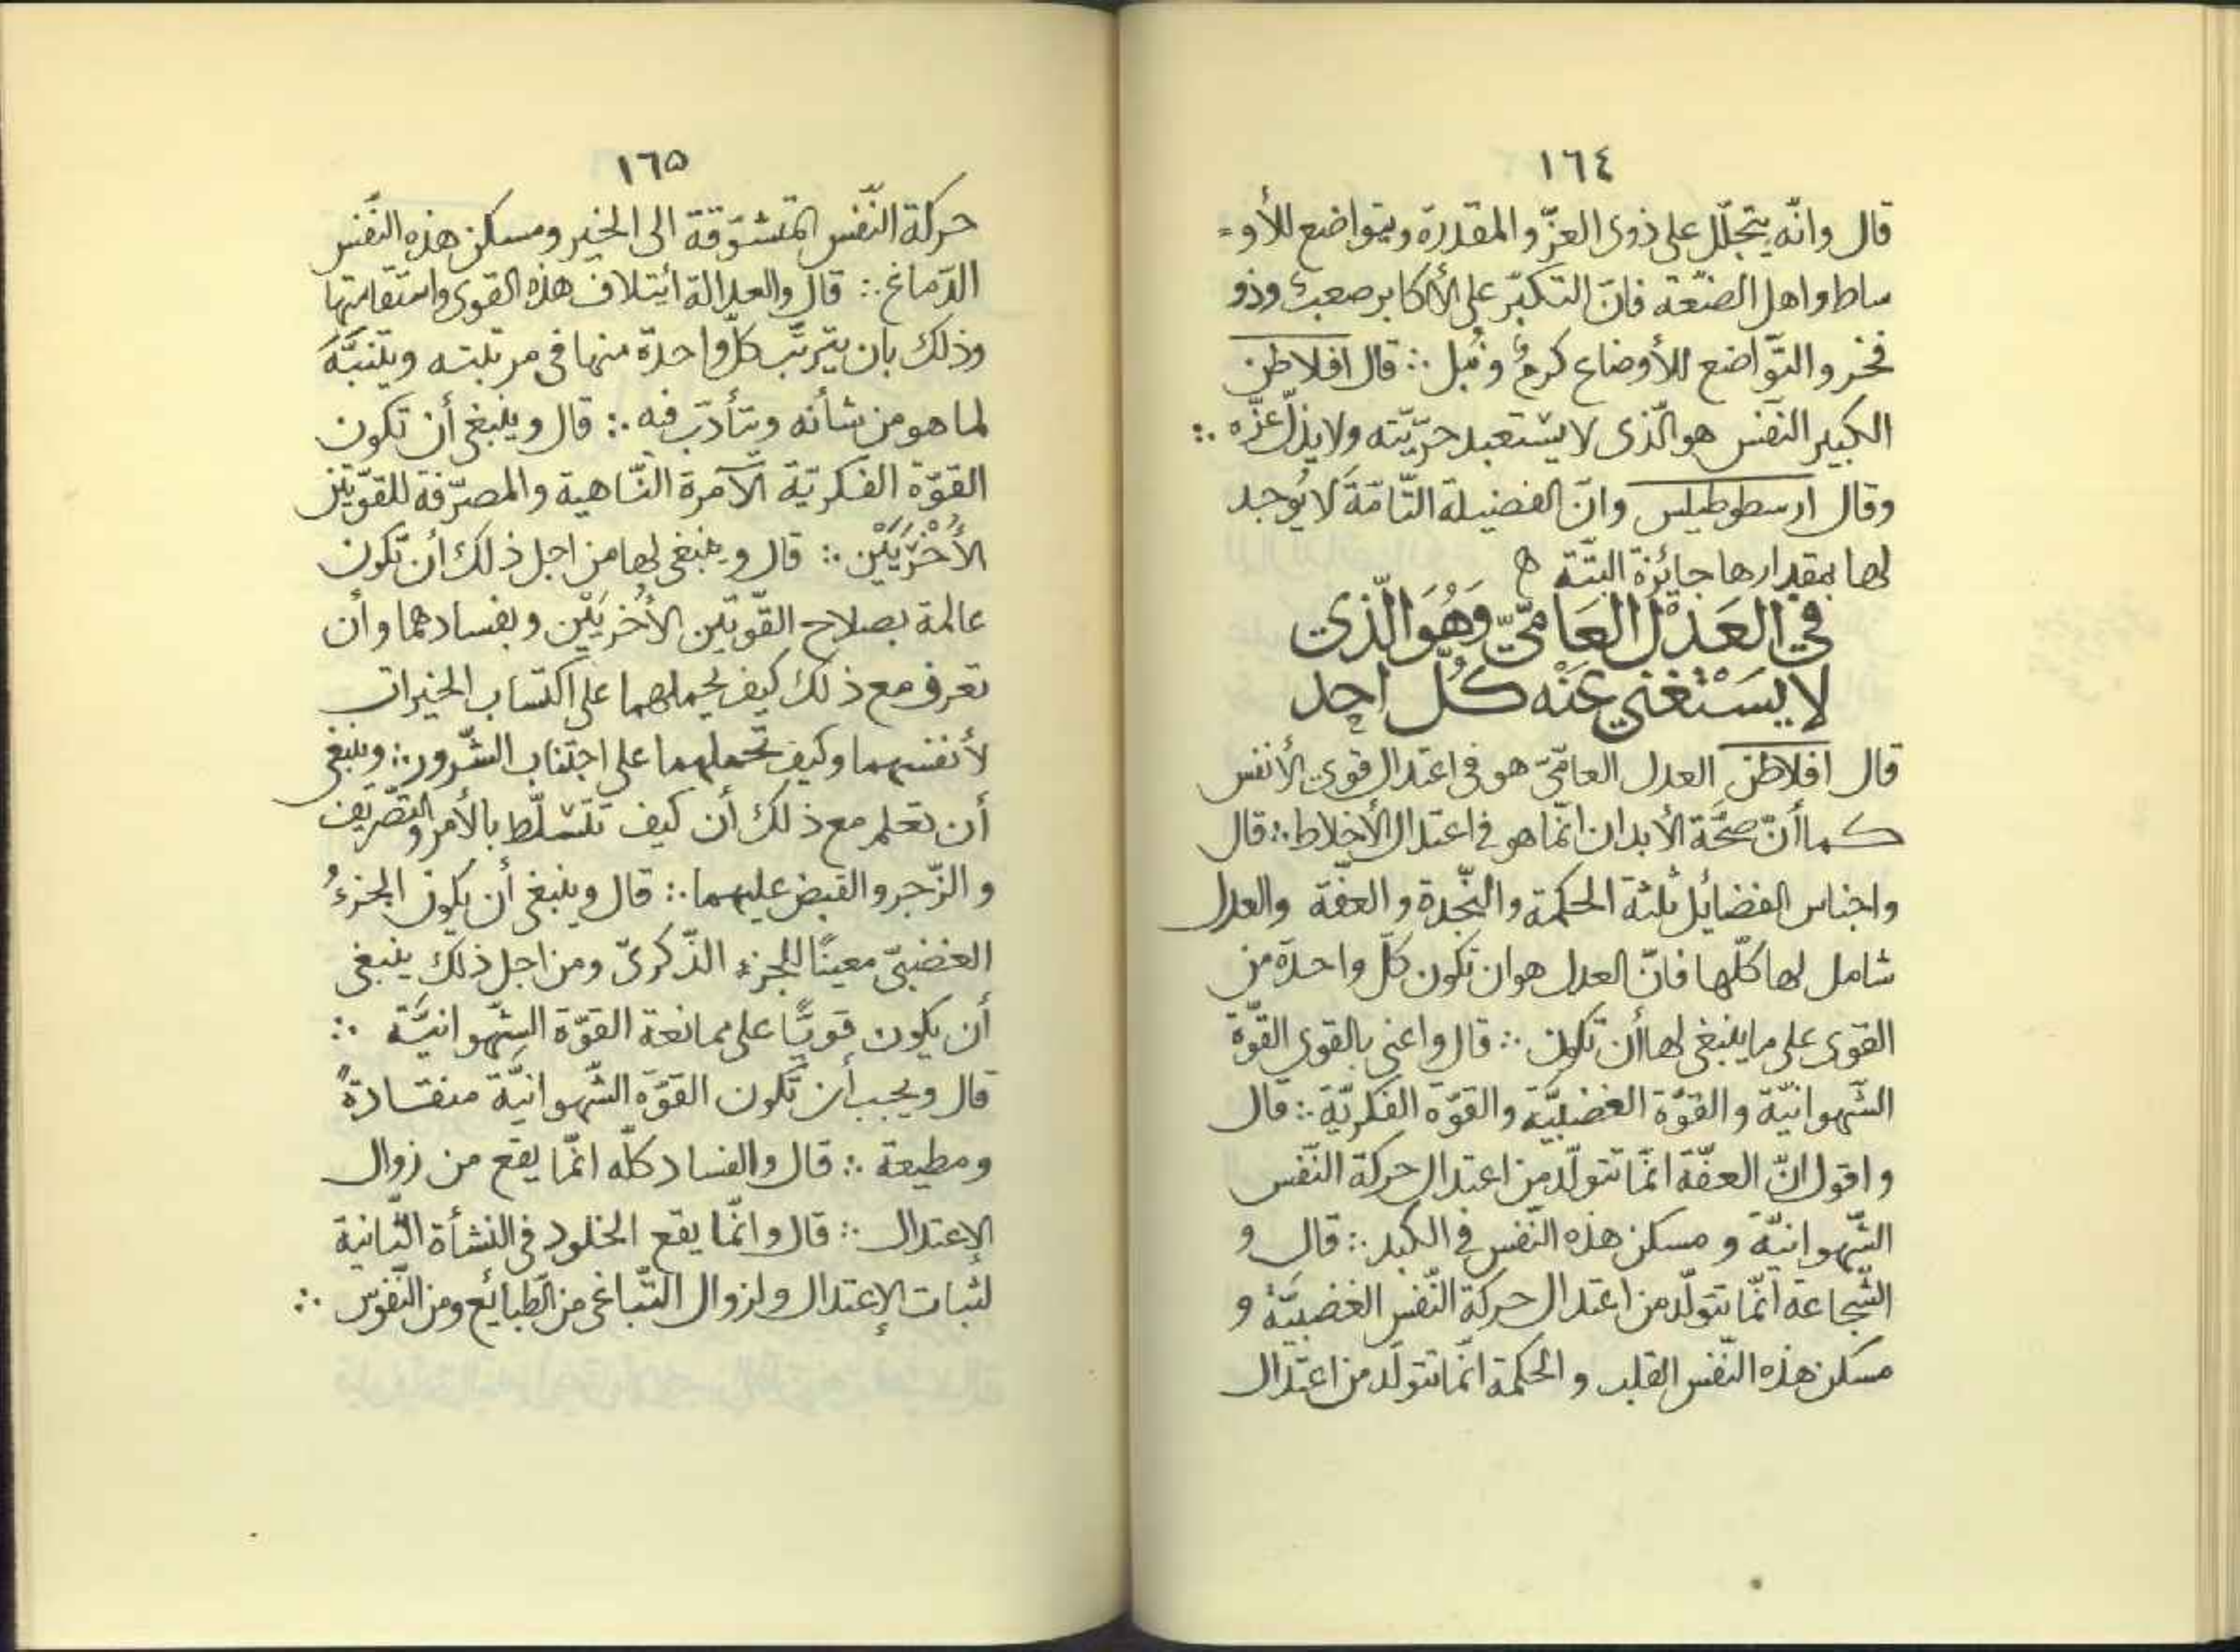 ١٦٤
قال وانّه يتجلّل على ذوى العزّ والمقدرة ويتواضع للأو=
ساط واهل الضّعة فانّ التكبّر على الأكابر صعب وذو
فخر والتّواضع للأوضاع كرم ونُبل ∴ قال افلاطن
الكبير النّفس هو الّذى لا يستعبد حرّيّته ولا يذلّ عزّه ∴
وقال ارسطوطيلس وانّ الفضيلة التّامّة لا يُوجد
لها بمقدارها جايزة البتّة ه
في العَدْل العَامّيّ وَهُوَ الّذي
لا يَسْتَغني عَنْه كُلّ احِد
قال افلاطن العدل العامّىّ هو فى اعتدال قوى الأنفس
كما أنّ صحّة الأبدان انّما هو فى اعتدال الأخلاط ∴ قال
واجناس الفضائل ثلثة الحكمة والنّجدة والعفّة والعدل
شامل لها كلّها فانّ العدل هو ان تكون كلّ واحدة من
القوى على ما ينبغى لها أن تكون ∴ قال واعنى بالقوى القوّة
الشّهوانيّة والقوّة الغضبيّة والقوّة الفكريّة ∴ قال
واقول انّ العفّة انّما تتولّد من اعتدال حركة النّفس
الشّهوانيّة و مسكن هذه النّفس فى الكبد ∴ قال و
الشّجاعة انّما تتولّد من اعتدال حركة النّفس الغضبيّة و
مسكن هذه النّفس القلب و الحكمة انّما تتولّد من اعتدال
١٦٥
حركة النّفس المتشوّقة الى الخير ومسكن هذه النّفس
الدّماغ ∴ قال والعدالة ائتلاف هذه القوى واستقامتها
وذلك بان يترتّب كلّ واحدة منها فى مرتبته ويتنبّه
لما هو من شأنه ويتأدّب فيه ∴ قال وينبغى أن تكون
القوّة الفكريّة الآمرة النّاهية والمصرّفة للقوّتين
الأُخْرَيَيْن ∴ قال وينبغى لها من اجل ذلك أن تكون
عالمة بصلاح القوّتين الأُخريَيْن وبفسادهما وأن
تعرف مع ذلك كيف يحملهما على اكتساب الخيرات
لأنفسهما وكيف تحملهما على اجتناب الشّرور ∴ وينبغى
أن تعلم مع ذلك أن كيف تتسلّط بالأمر والتّصريف
و الزّجر والقبض عليهما ∴ قال وينبغى أن يكون الجزءُ
الغضبىّ معينًا للجزء الذّكرىّ ومن اجل ذلك ينبغى
أن يكون قويًّا على ممانعة القوّة الشّهوانيّة ∴
قال ويجب أن تكون القوّة الشّهوانيّة منقادةً
ومطيعة ∴ قال والفساد كلّه انّما يقع من زوال
الإعتدال ∴ قال وانّما يقع الخلود فى النشأة الثّانية
لثبات الإعتدال ولزوال التّباغى من الطّبايع ومن النّفوس ∴